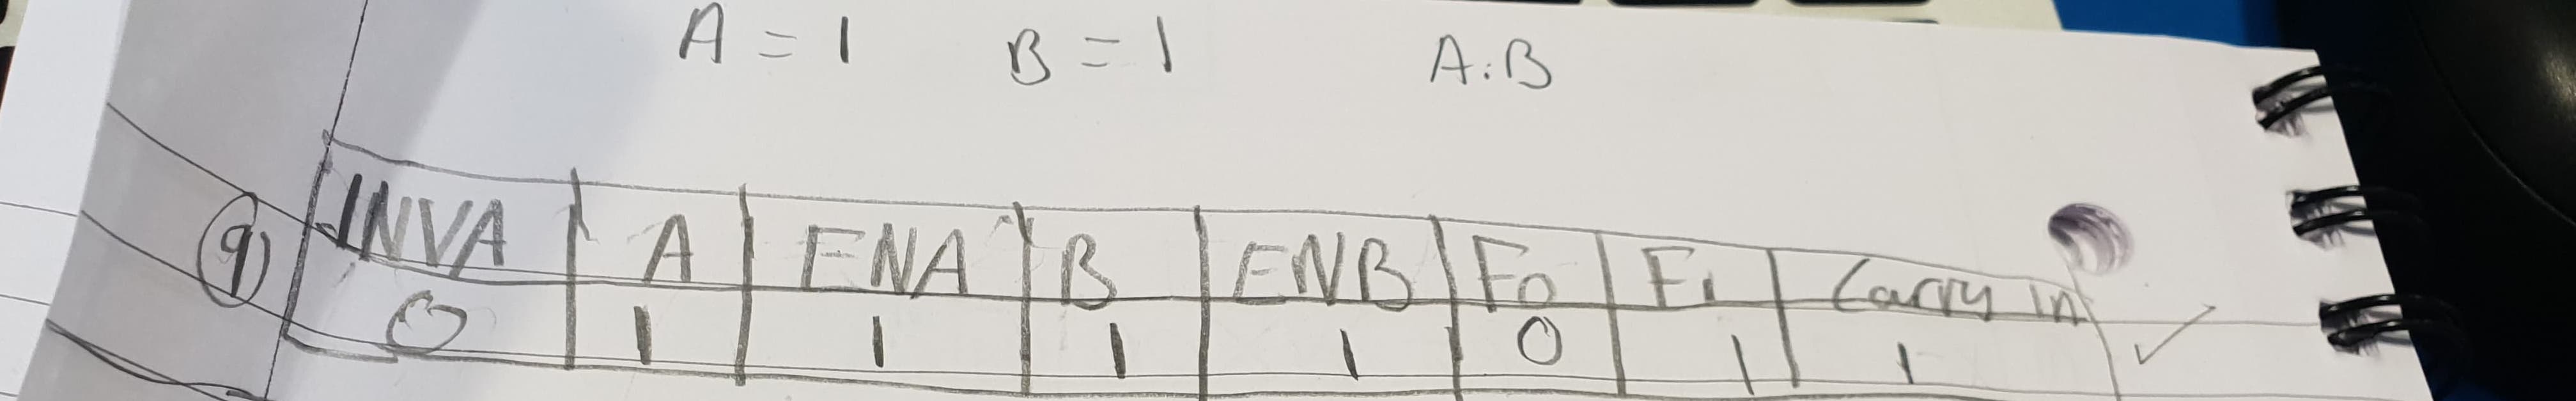 A = 1 B = 1 A.B
9 INVA A ENA B ENB F0 F1 Carry in
0 1 1 1 1 0 1 1 ✓